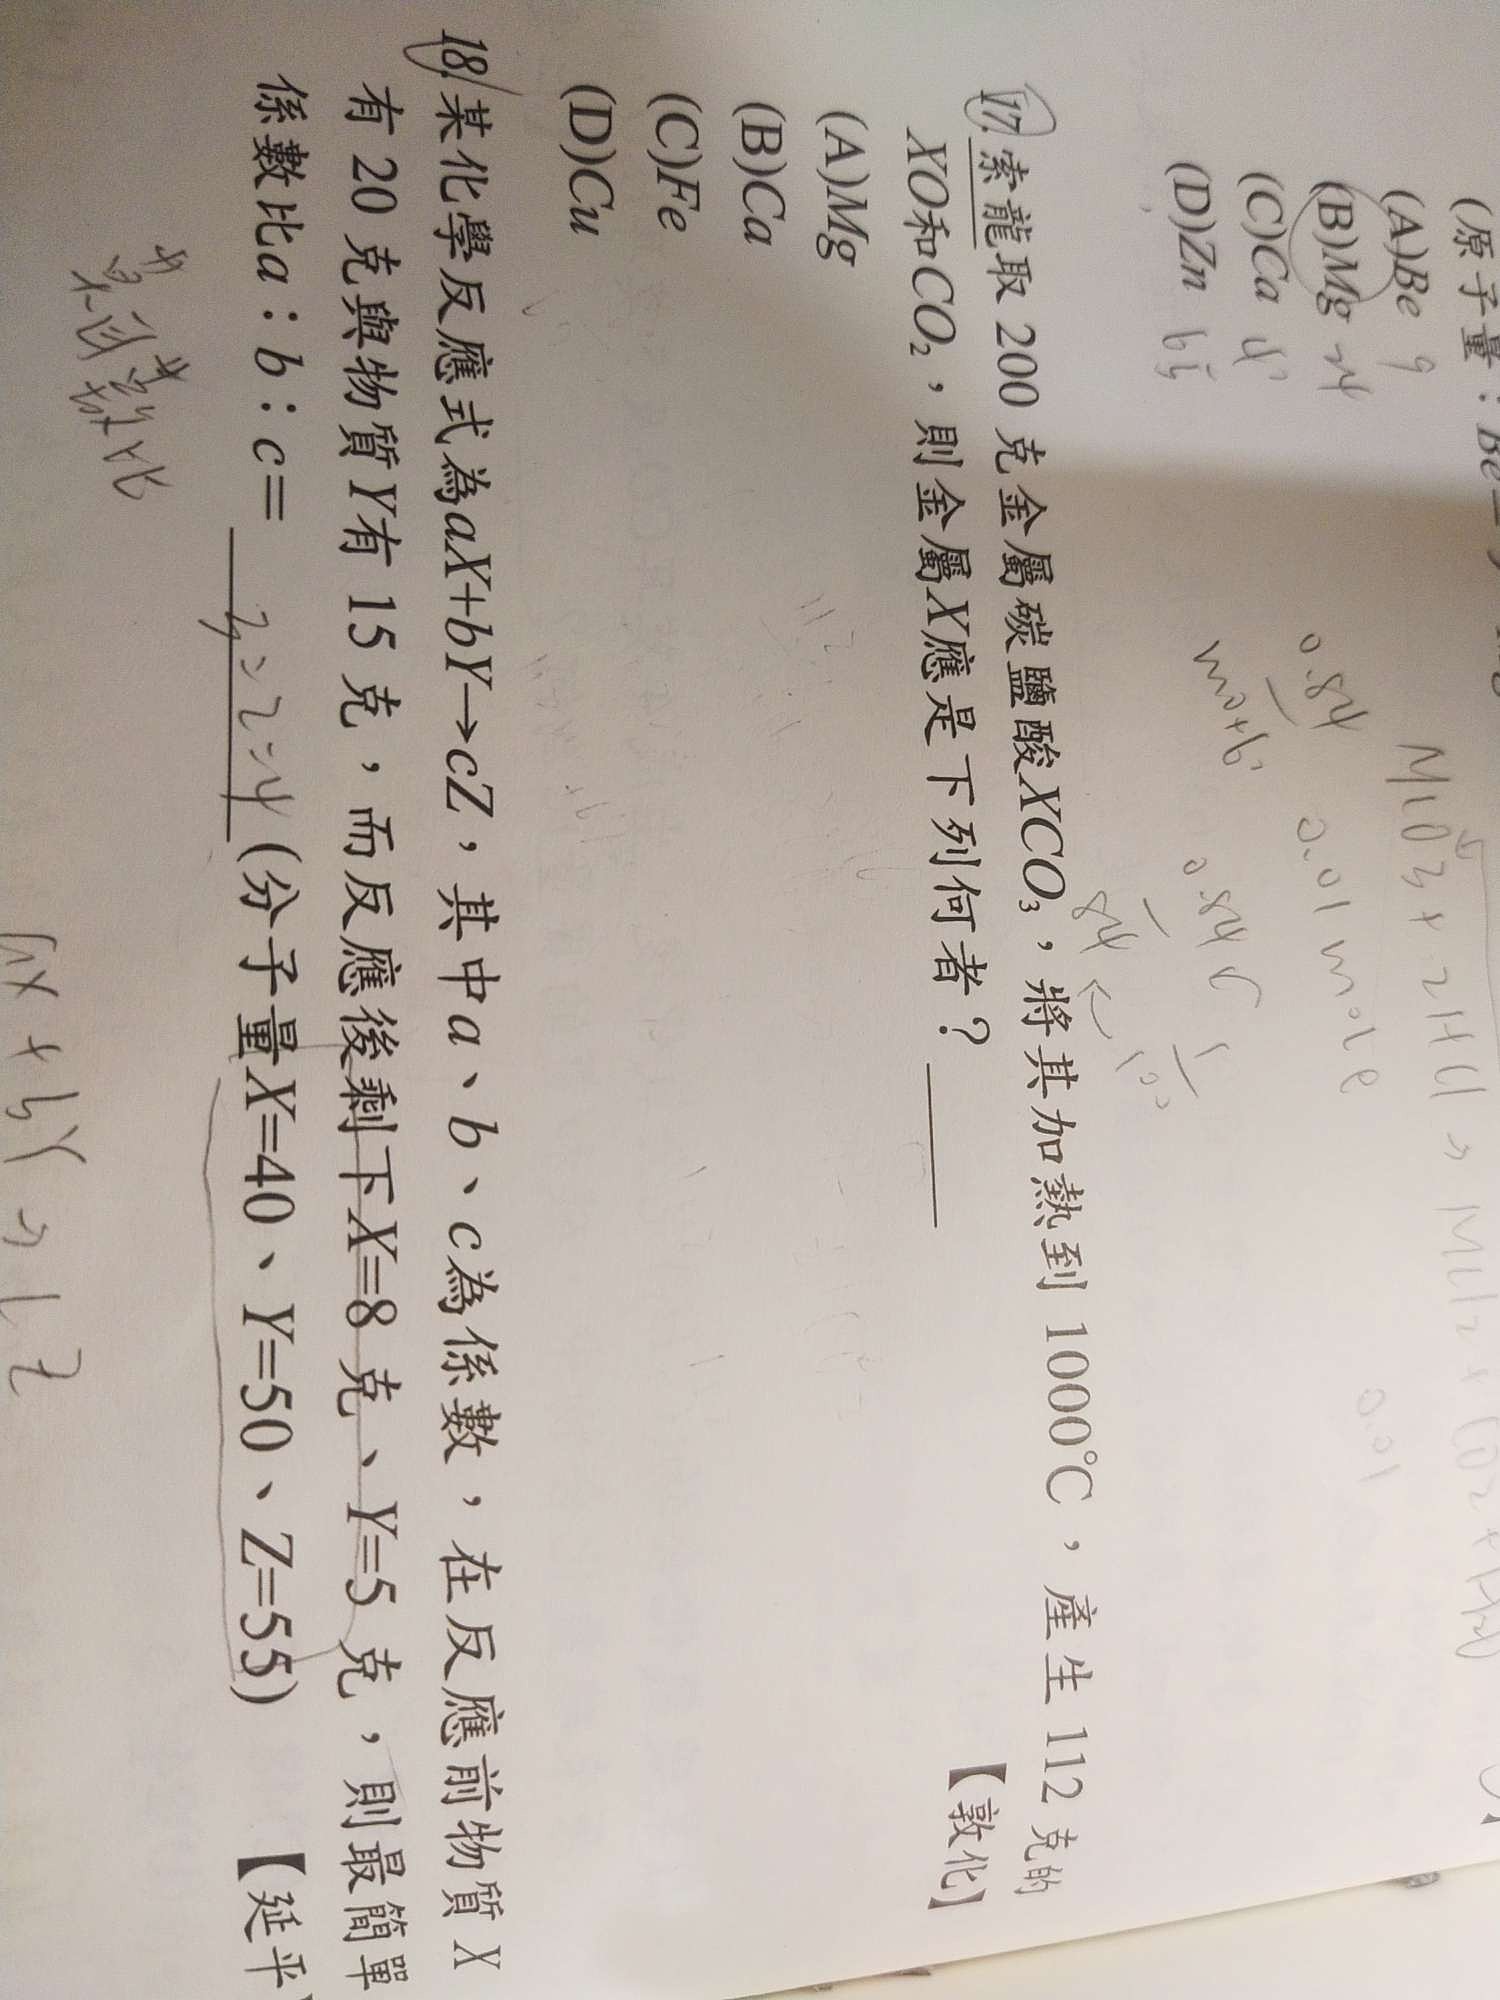 (原子量：Be=9
(A)Be 9
(B)Mg 24
(C)Ca 40
(D)Zn 65
0.84
0.01 mole
0.01
0.84
84
100
17. 索龍取 200 克金屬碳鹽酸XCO₃，將其加熱到 1000℃，產生 112 克的
XO和CO₂，則金屬X應是下列何者？______ 【敦化】
(A)Mg
(B)Ca
(C)Fe
(D)Cu
18. 某化學反應式為aX+bY→cZ，其中a、b、c為係數，在反應前物質 X
有 20 克與物質Y有 15 克，而反應後剩下X=8 克、Y=5 克，則最簡單
係數比a：b：c= 3:2:4 (分子量X=40、Y=50、Z=55) 【延平】